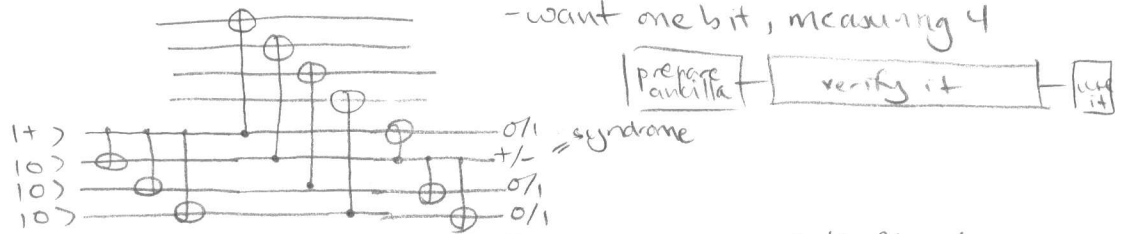 -want one bit, measuring 4
prepare ancilla
verify it
use it
|+>
|0>
|0>
|0>
0/1
+/-
0/1
0/1
= syndrome